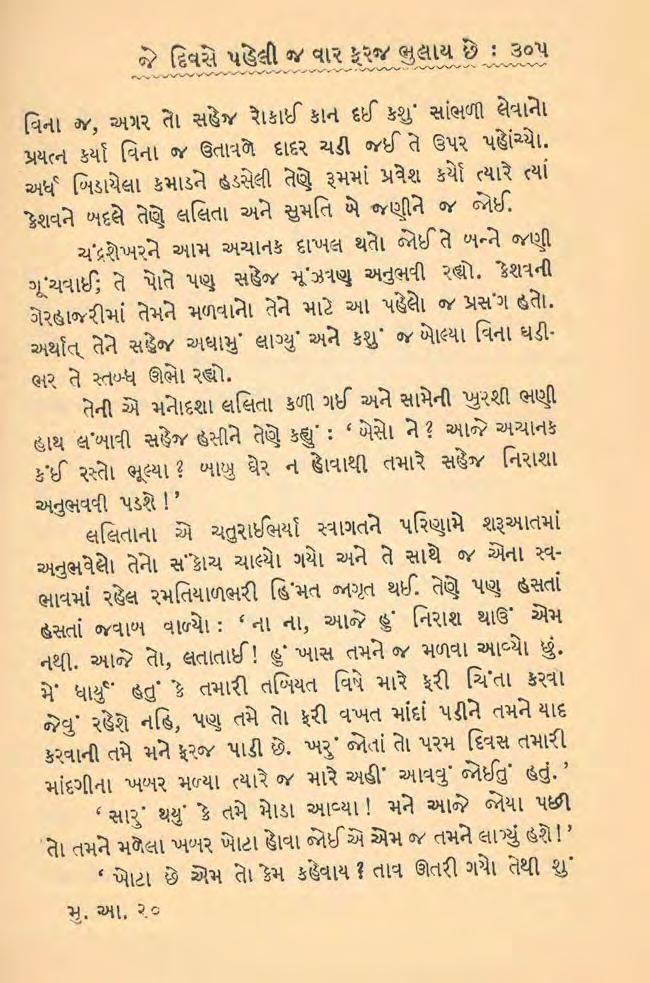 જે દિવસે પહેલી જ વાર ફરજ ભુલાય છે : ૩૦૫
વિના જ, અગર તો સહેજ રોકાઈ કાન દઈ કશું સાંભળી લેવાનો
પ્રયત્ન કર્યા વિના જ ઉતાવળે દાદર ચડી જઈ તે ઉપર પહોંચ્યો.
અર્ધ બિડાયેલા કમાડને હડસેલી તેણે રૂમમાં પ્રવેશ કર્યો ત્યારે ત્યાં
કેશવને બદલે તેણે લલિતા અને સુમતિ બે જણીને જ જોઈ.
ચંદ્રશેખરને આમ અચાનક દાખલ થતો જોઈ તે બન્ને જણી
ગૂંચવાઈ; તે પોતે પણ સહેજ મૂંઝવણ અનુભવી રહ્યો. કેશવની
ગેરહાજરીમાં તેમને મળવાનો તેને માટે આ પહેલો જ પ્રસંગ હતો.
અર્થાત્ તેને સહેજ અઘામું લાગ્યું અને કશું જ બોલ્યા વિના ઘડી-
ભર તે સ્તબ્ધ ઊભો રહ્યો.
તેની એ મનોદશા લલિતા કળી ગઈ અને સામેની ખુરશી ભણી
હાથ લંબાવી સહેજ હસીને તેણે કહ્યું : ‘ બેસો ને ? આજે અચાનક
કંઈ રસ્તો ભૂલ્યા ? બાબુ ઘેર ન હોવાથી તમારે સહેજ નિરાશા
અનુભવવી પડશે ! ’
લલિતાના એ ચતુરાઈભર્યા સ્વાગતને પરિણામે શરૂઆતમાં
અનુભવેલો તેનો સંકોચ ચાલ્યો ગયો અને તે સાથે જ એના સ્વ-
ભાવમાં રહેલ રમતિયાળભરી હિંમત જાગૃત થઈ. તેણે પણ હસતાં
હસતાં જવાબ વાળ્યો : ‘ ના ના, આજે હું નિરાશ થાઉં એમ
નથી. આજે તો, લતાતાઈ ! હું ખાસ તમને જ મળવા આવ્યો છું.
મેં ધાર્યું હતું કે તમારી તબિયત વિષે મારે ફરી ચિંતા કરવા
જેવું રહેશે નહિ, પણ તમે તો ફરી વખત માંદાં પડીને તમને યાદ
કરવાની તમે મને ફરજ પાડી છે. ખરું જોતાં તો પરમ દિવસ તમારી
માંદગીના ખબર મળ્યા ત્યારે જ મારે અહીં આવવું જોઈતું હતું. ’
‘ સારું થયું કે તમે મોડા આવ્યા ! મને આજે જોયા પછી
તો તમને મળેલા ખબર ખોટા હોવા જોઈ એ એમ જ તમને લાગ્યું હશે ! ’
‘ ખોટા છે એમ તો કેમ કહેવાય ? તાવ ઊતરી ગયો તેથી શું
મુ. આ. ૨૦